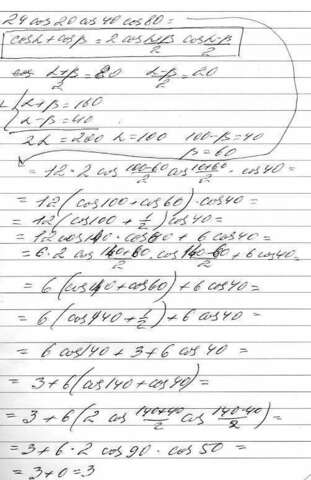 24 cos20 cos40 cos80 =
cosα + cosβ = 2 cos (α+β)/2 cos (α-β)/2
cos (α+β)/2 = 80 (α-β)/2 = 20
α+β = 160
α-β = 40
2α = 200 α = 100 100-β = 40
β = 60
= 12 · 2 cos (100-60)/2 cos (100+60)/2 · cos40 =
= 12 (cos100 + cos60) · cos40 =
= 12 (cos100 + 1/2) cos40 =
= 12 cos100 · cos40 + 6 cos40 =
= 6 · 2 cos cos + 6 cos40 =
= 6 (cos140 + cos60) + 6 cos40 =
= 6 (cos140 + 1/2) + 6 cos40 =
= 6 cos140 + 3 + 6 cos40 =
= 3 + 6 (cos140 + cos40) =
= 3 + 6 (2 cos (140+40)/2 cos (140-40)/2) =
= 3 + 6 · 2 cos90 · cos50 =
= 3 + 0 = 3